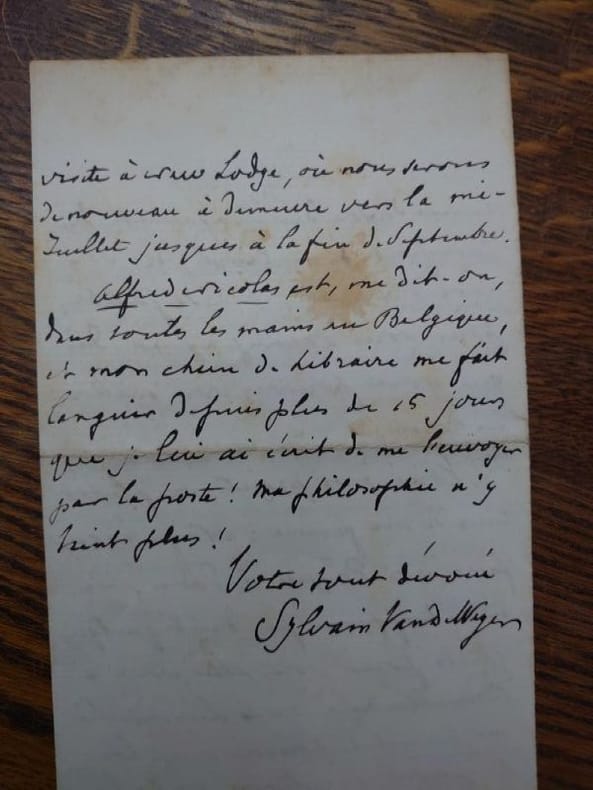 visite à New Lodge, où nous serons
de nouveau à demeure vers la mi-
Juillet jusques à la fin de Septembre.
Alfred Nicolas est, me dit-on,
dans toutes les mains en Belgique,
et mon chien de libraire me fait
languir depuis plus de 15 jours
que je lui ai écrit de me l'envoyer
par la poste! Ma philosophie n'y
tient plus!
Votre tout dévoué
Sylvain Van de Weyer